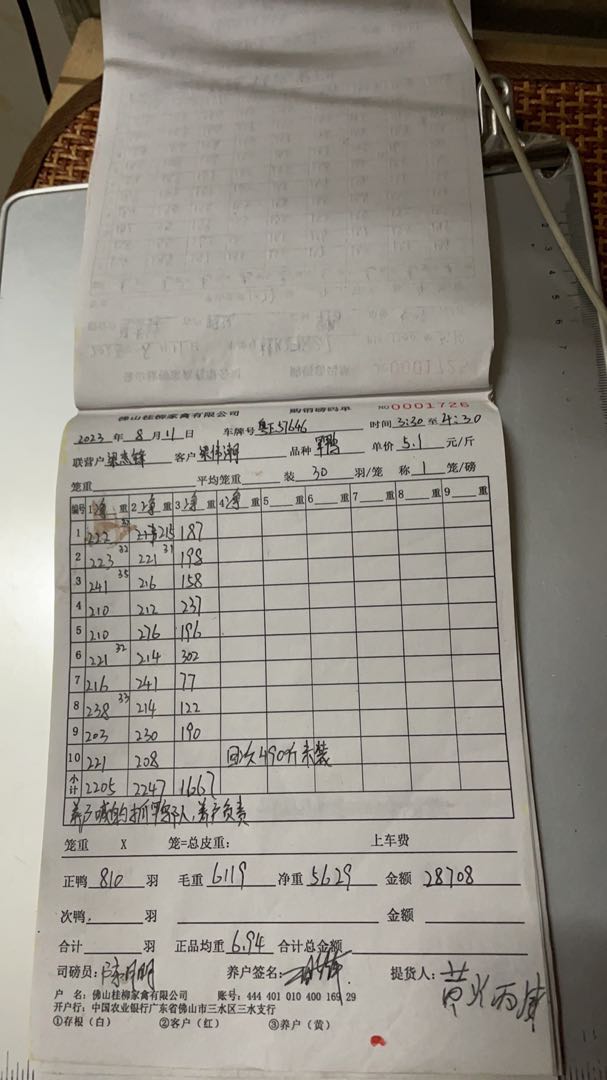 佛山桂柳家禽有限公司 购销磅码单 NO 0001726
2023 年 8 月 11 日 车牌号 57646 时间 3:30 至 4:30
联营户 梁志锋 客户 梁伟潮 品种 单价 5.1 元/斤
笼重 平均笼重 装 30 羽/笼 称 1 笼/磅
编号 1 净 重 2 净 重 3 净 重 4 净 重 5 重 6 重 7 重 8 重 9 重
1 222 215 187
2 223 32 221 31 198
3 241 35 216 158
4 210 212 237
5 210 276 196
6 221 32 214 302
7 216 241 77
8 238 33 214 122
9 203 230 190
10 221 208 回欠490斤未装
小计 2205 2247 1667
养户负责
笼重 X 笼=总皮重: 上车费
正鸭 810 羽 毛重 6119 净重 5629 金额 28708
次鸭 羽 金额
合计 羽 正品均重 6.94 合计总金额
司磅员: 养户签名: 提货人:
户 名: 佛山桂柳家禽有限公司 账号: 444 401 010 400 169 29
开户行: 中国农业银行广东省佛山市三水区三水支行
①存根(白) ②客户(红) ③养户(黄)